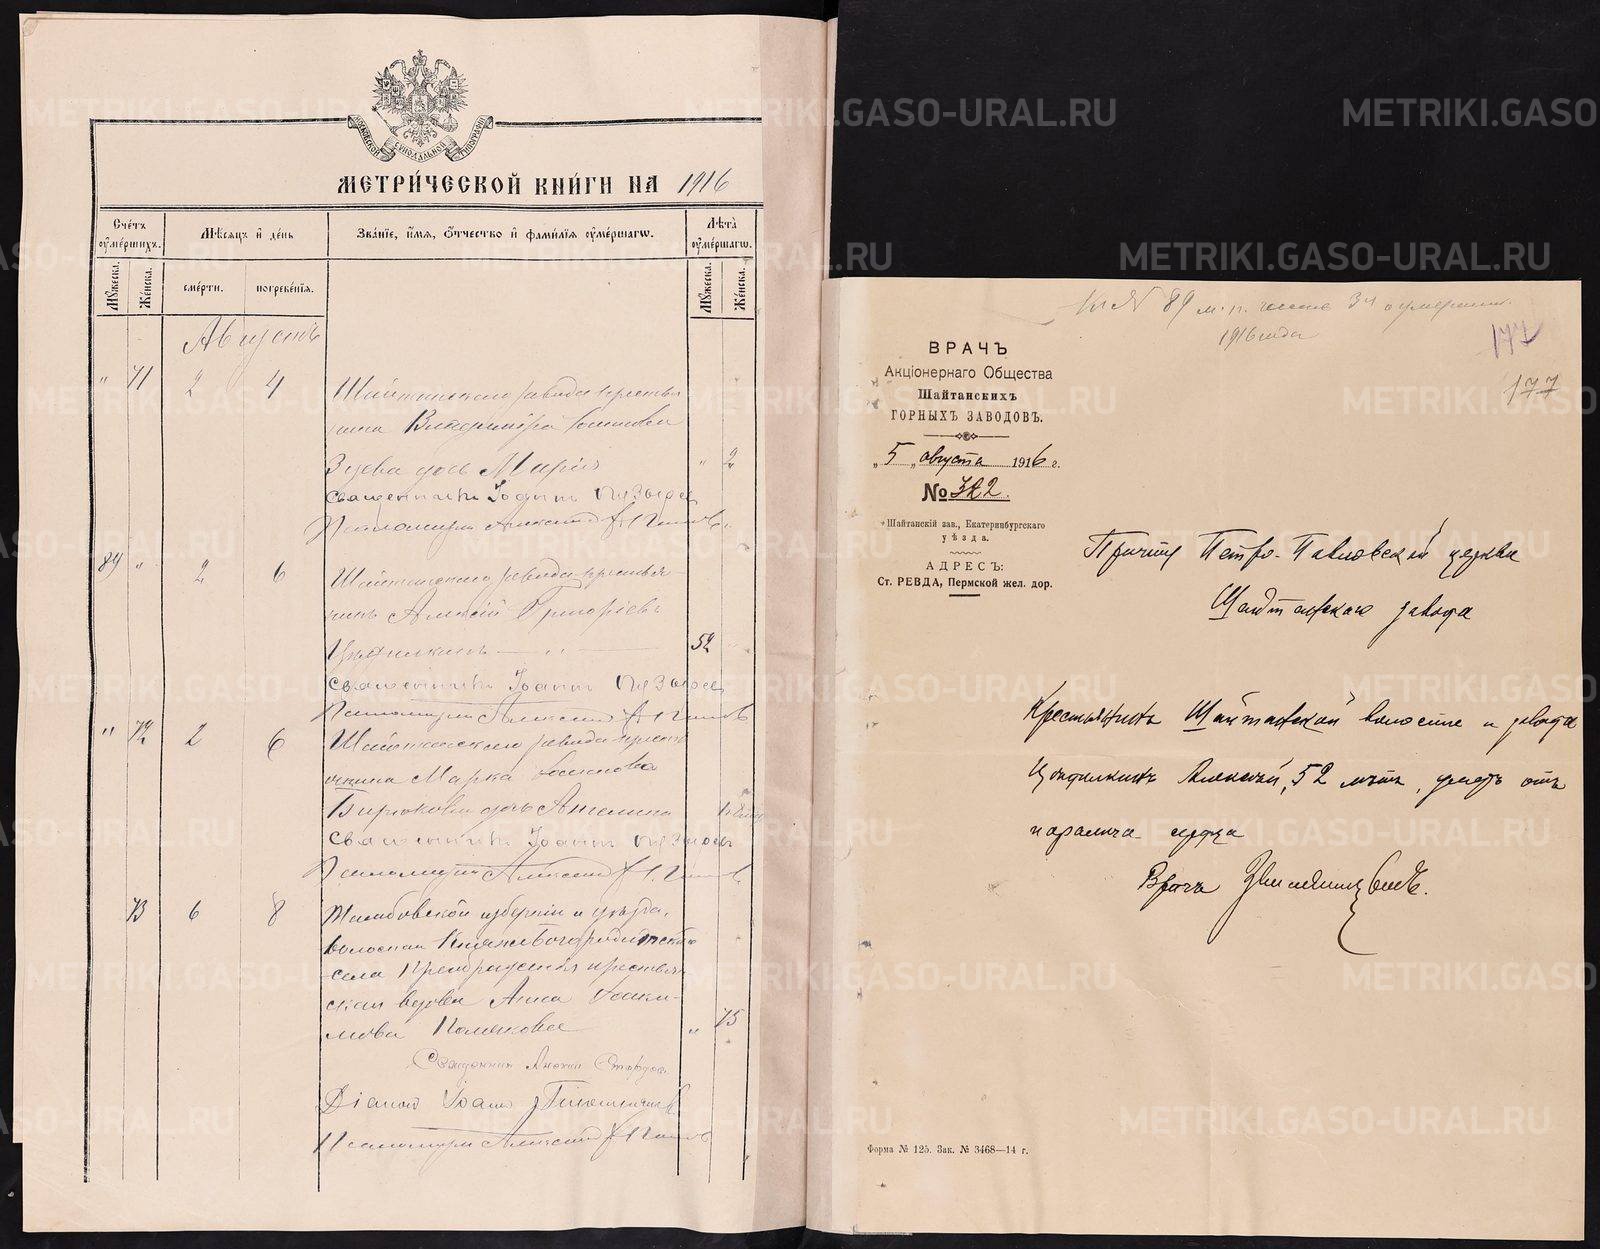 МОСКОВСКОЙ СѴНОДАЛЬНОЙ ТИПОГРАФІИ
МЕТРИ́ЧЕСКОЙ КНИ́ГИ НА 1916
Сче́тъ ᲂу҆ме́ршихъ.
Мѣ́сяцъ и҆ де́нь
Зва́нїе, и҆́мя, ѻ҆́тчество и҆ фами́лїя ᲂу҆ме́ршагѡ.
Лѣ́та ᲂу҆ме́ршагѡ.
Мꙋ́жеска.
Же́нска.
сме́рти.
погребе́нїя.
Мꙋ́жеска.
Же́нска.
Августъ
" 71 2 4 Шайтанскаго завода крестья
нина Владиміра
Зуева дочь Марія " 2
Священникъ Іоаннъ
Псаломщикъ Александ
89 " 2 6 Шайтанскаго завода крестья-
нинъ Алексій Григоріевъ
Цыдилкинъ — " — 52
Священникъ Іоаннъ
Псаломщикъ Александ
" 72 2 6 Шайтанскаго завода кресть
янина Марка
Бирюкова дочь Ангелина
Священникъ Іоаннъ
Псаломщикъ Александ
73 6 8 Тамбовской губерніи и уѣзда,
волости Княжебогородитской
села Преображенія крестьян
ская вдова Анна Іоаки-
мова Полякова " 75
Священникъ
Діаконъ Іоаннъ
Псаломщикъ Александ
Къ № 89 м. п. часть 3я о умершихъ
1916 года
177
177
ВРАЧЪ
Акціонернаго Общества
Шайтанскихъ
ГОРНЫХЪ ЗАВОДОВЪ.
„5„ августа 1916 г.
№ 342.
Шайтанскій зав., Екатеринбургскаго
уѣзда.
АДРЕСЪ:
Ст. РЕВДА, Пермской жел. дор.
Причту Петро-Павловской церкви
Шайтанскаго завода
Крестьянинъ Шайтанской волости и завода
Цыдилкинъ Алексѣй, 52 лѣтъ, умеръ отъ
паралича сердца
Врачъ
Форма № 125. Зак. № 3468—14 г.
METRIKI.GASO-URAL.RU